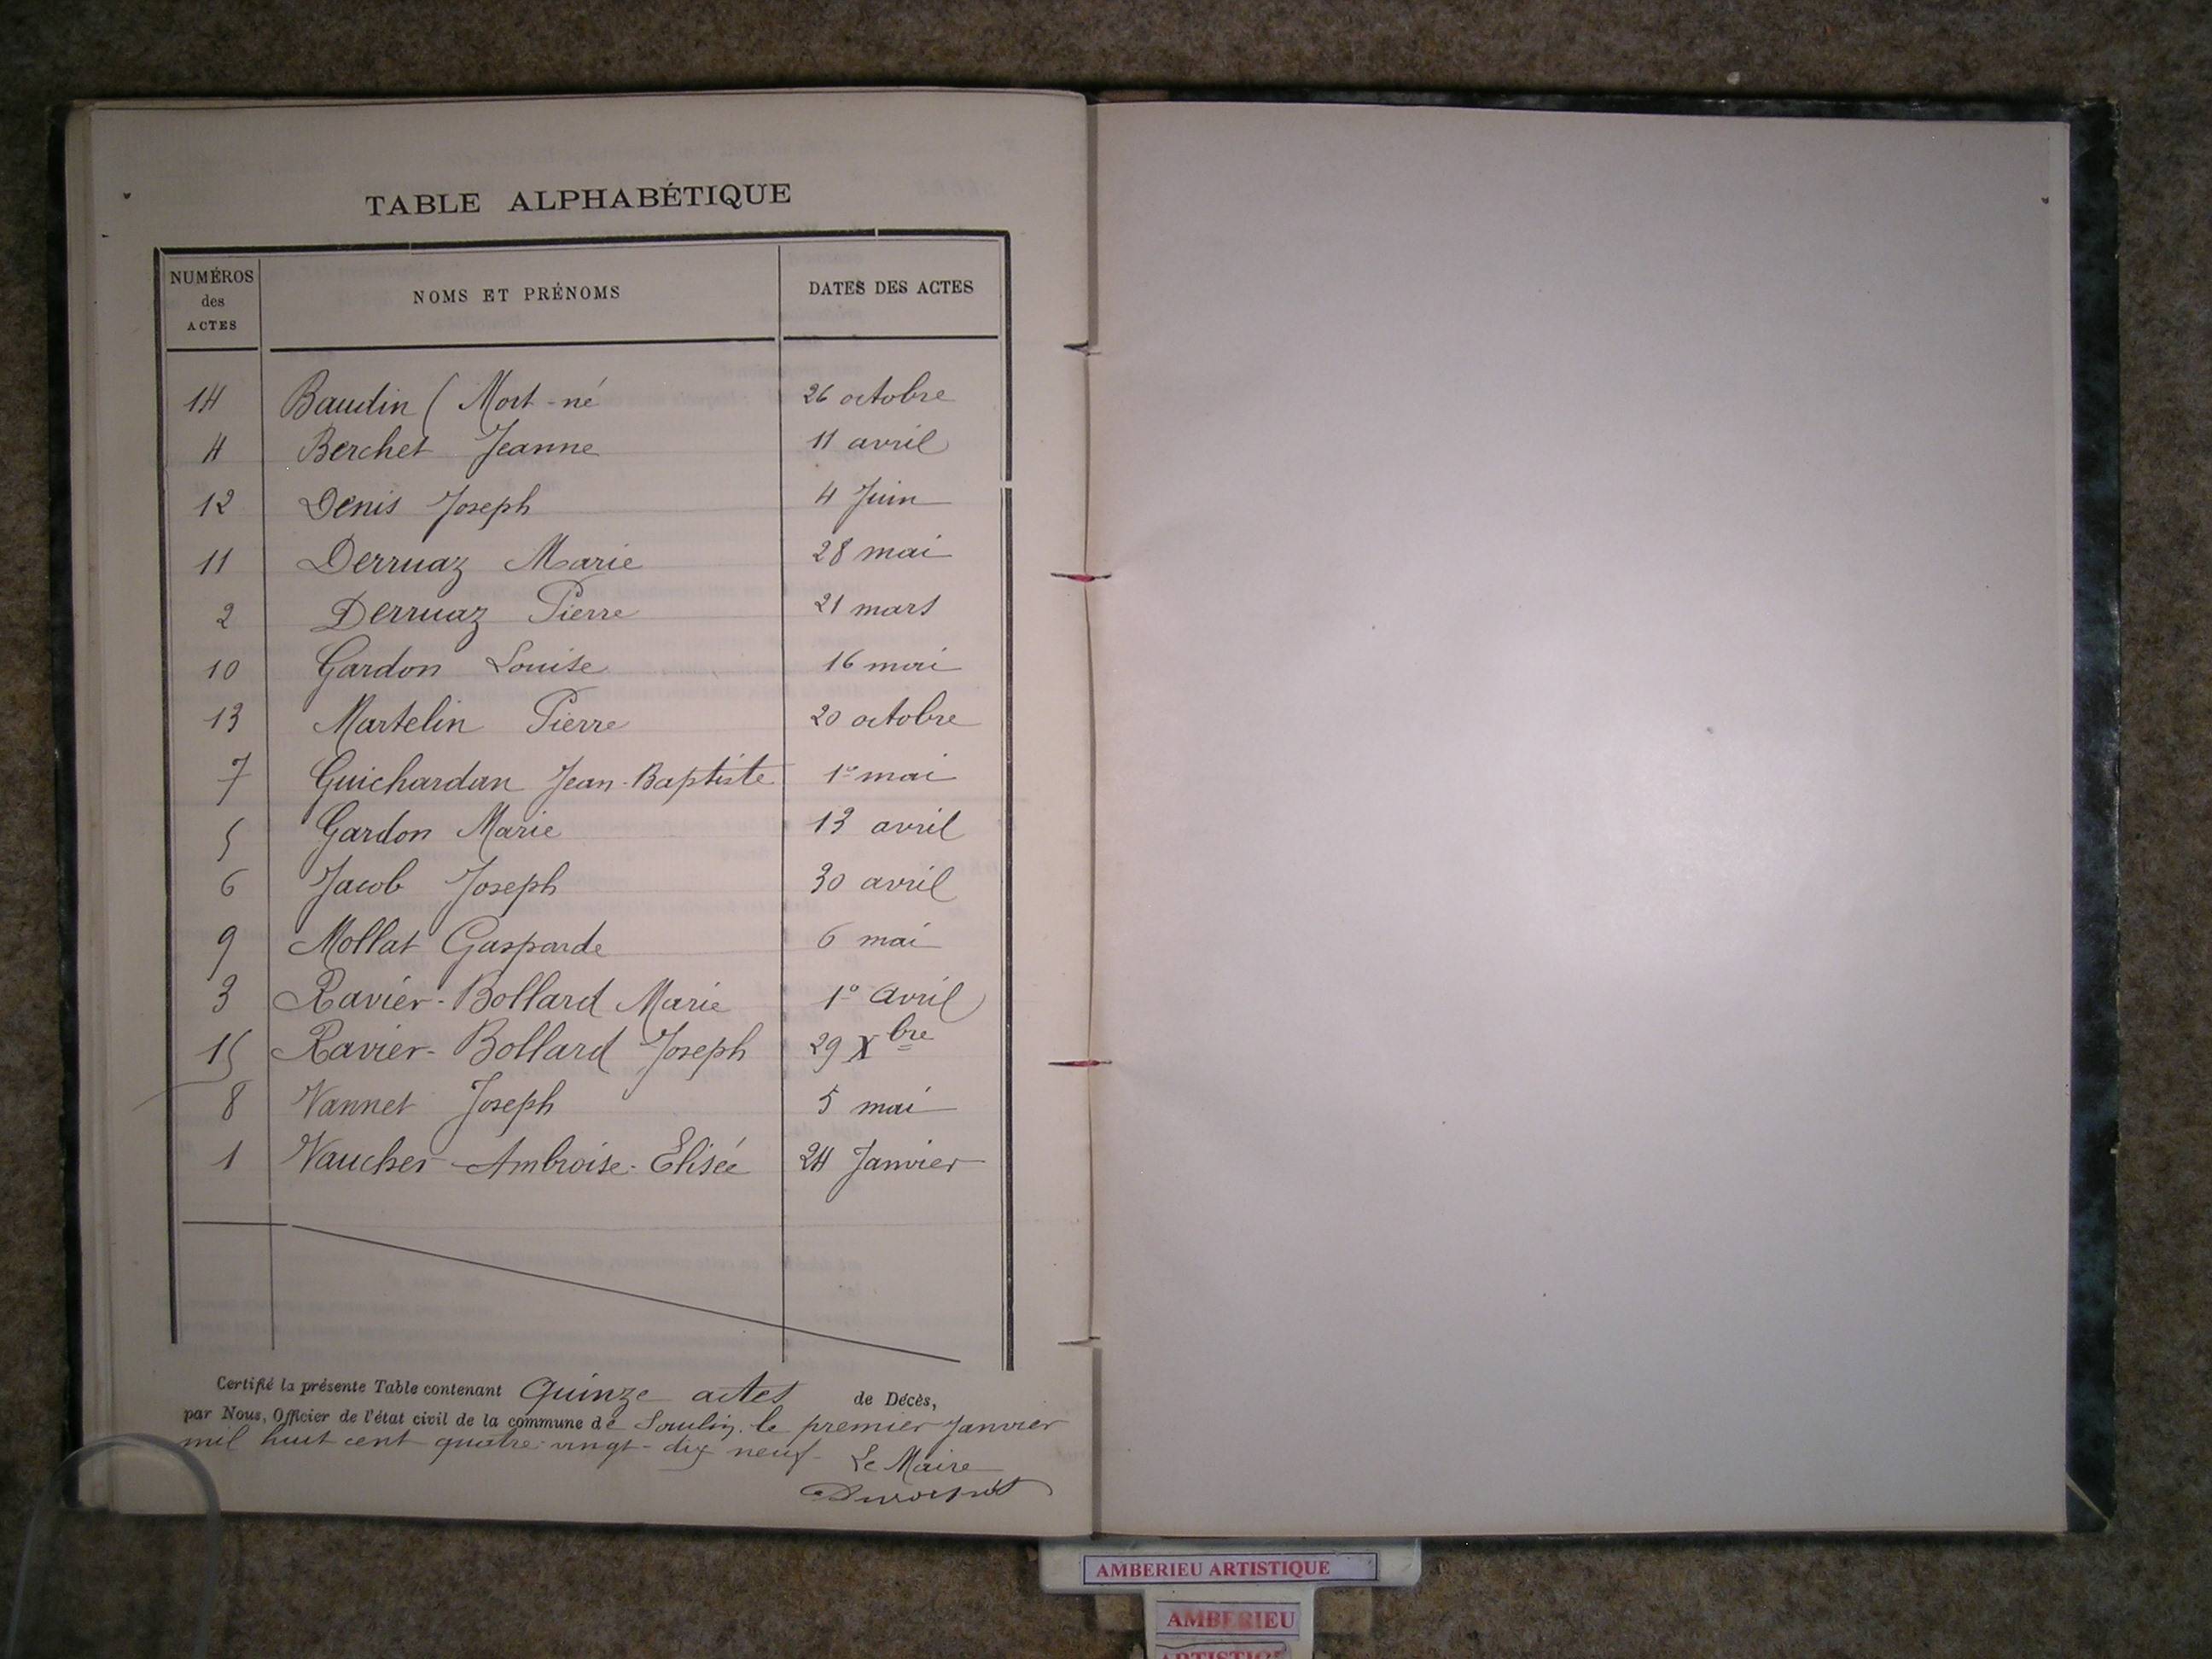 TABLE ALPHABÉTIQUE
NUMÉROS des ACTES NOMS ET PRÉNOMS DATES DES ACTES
14 Baudin ( Mort-né 26 octobre
4 Berchet Jeanne 11 avril
12 Denis Joseph 4 Juin
11 Derruaz Marie 28 mai
2 Derruaz Pierre 21 mars
10 Gardon Louise 16 mai
13 Martelin Pierre 20 octobre
7 Guichardan Jean-Baptiste 1º mai
5 Gardon Marie 13 avril
6 Jacob Joseph 30 avril
9 Mollat Gasparde 6 mai
3 Ravier-Bollard Marie 1º Avril
15 Ravier-Bollard Joseph 29 Xbre
8 Vannet Joseph 5 mai
1 Vaucher Ambroise-Elisée 24 Janvier
Certifié la présente Table contenant Quinze actes de Décès,
par Nous, Officier de l'état civil de la commune de le premier Janvier
mil huit cent quatre-vingt-dix neuf.
Le Maire
AMBERIEU ARTISTIQUE
AMBERIEU
ARTISTIQUE